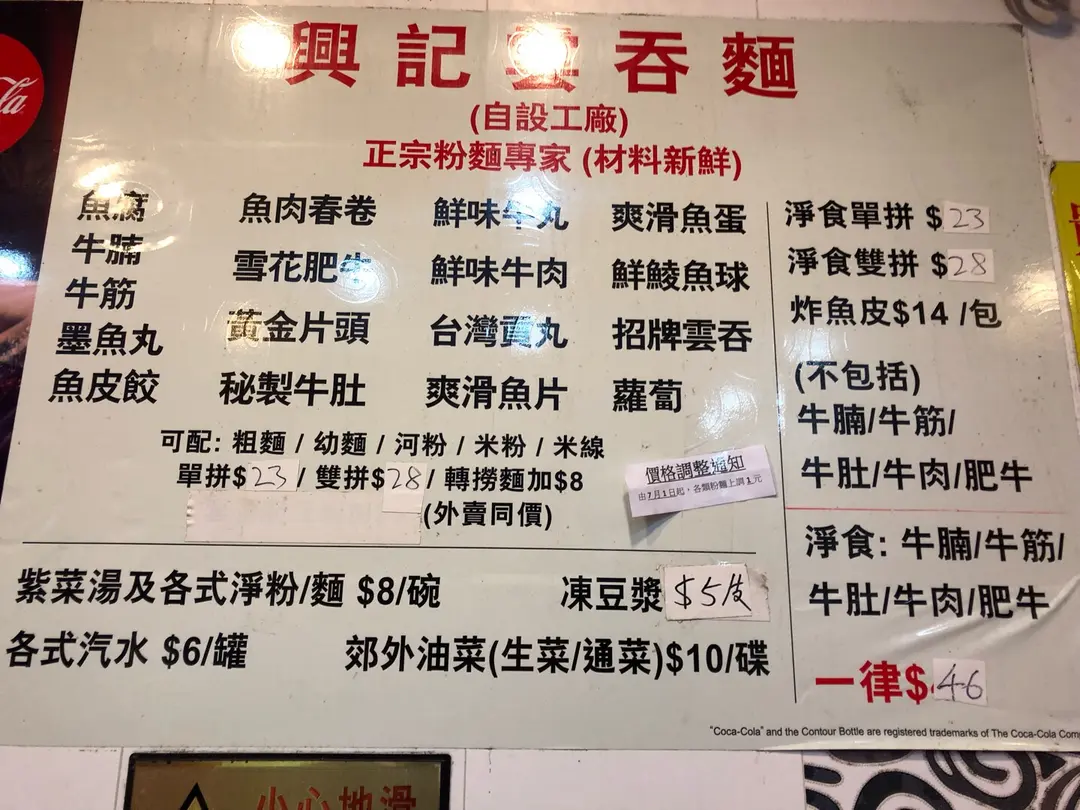 興記雲吞麵
(自設工廠)
正宗粉麵專家 (材料新鮮)
魚腐 魚肉春卷 鮮味牛丸 爽滑魚蛋
牛腩 雪花肥牛 鮮味牛肉 鮮鯪魚球
牛筋 黃金片頭 台灣貢丸 招牌雲吞
墨魚丸 秘製牛肚 爽滑魚片 蘿蔔
魚皮餃
可配: 粗麵 / 幼麵 / 河粉 / 米粉 / 米線
單拼$23 / 雙拼$28 / 轉撈麵加$8
(外賣同價)
價格調整通知
由7月1日起，各類粉麵上調1元
淨食單拼 $23
淨食雙拼 $28
炸魚皮$14 /包
(不包括)
牛腩/牛筋/
牛肚/牛肉/肥牛
淨食: 牛腩/牛筋/
牛肚/牛肉/肥牛
一律$46
紫菜湯及各式淨粉/麵 $8/碗 凍豆漿 $5/支
各式汽水 $6/罐 郊外油菜(生菜/通菜)$10/碟
"Coca-Cola" and the Contour Bottle are registered trademarks of The Coca-Cola Com
小心地滑